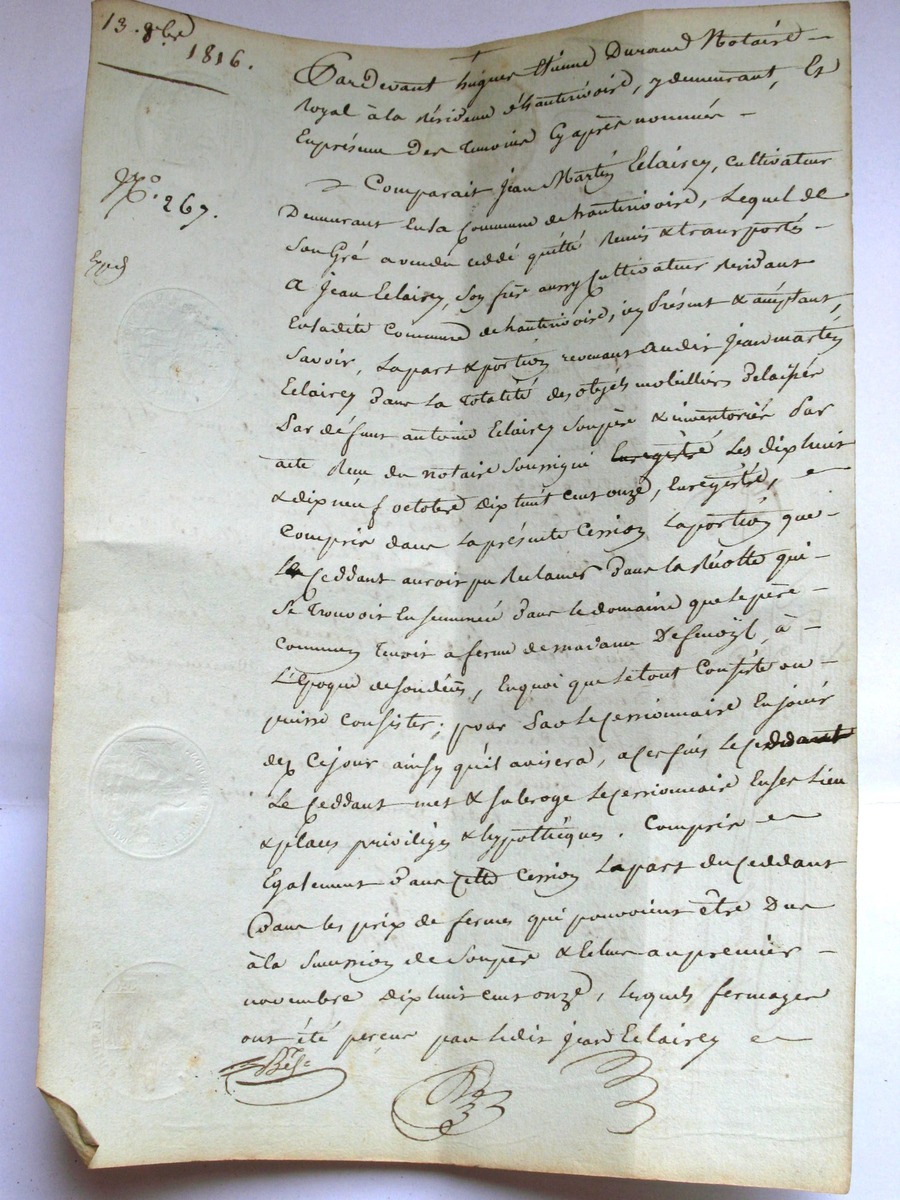 13. 8bre
1816.
No. 267.
Expéd
Pardevant hugues Etienne Durand Notaire
Royal à la Résidence d'hauterivoire, y demeurant, Et
En présence Des temoins Cy après nommés
Comparait Jean Martin Eclairey, Cultivateur
Demeurant En la Commune de hauterivoire, Lequel de
Son Gré a vendu cédé quitté Remis & transporté
A Jean Eclairey, son frère aussy Cultivateur résidant
En ladite Commune de hauterivoire, icy Présent & acceptant,
Savoir, La part & portion revenant audit Jean martin
Eclairey Dans La Totalité des objets mobilliers Délaissés
Par défunt antoine Eclairey Son père & inventoriés Par
acte Reçu du notaire Soussigné Enregistré Les dix huit
& dix neuf octobre dix huit cent onze, Enregistré,
Compris dans La présente Cession La portion que
Le Ceddant auroit pu Réclamer Dans la Récolte qui
Se Trouvoit Ensemencé Dans le domaine que le père
Commun Tenoit a ferme de madame à
L'Epoque de son décès, En quoi que le tout Consiste ou
puisse Consister; pour Par le Cessionnaire En jouir
dez Ce jour ainsy qu'il avisera, a ces fins le Ceddant
Le Ceddant met & Subroge Le Cessionnaire En ses Lieu
& places privilèges & hypothèques. Compris
Egalement Dans Cette Cession La part du Ceddant
Dans les prix de fermes qui pouvoient être Dus
à la Succession de Son père & échus au premier
novembre dix huit cent onze, Lesquels fermages
ont été perçus par ledit Jean Eclairey